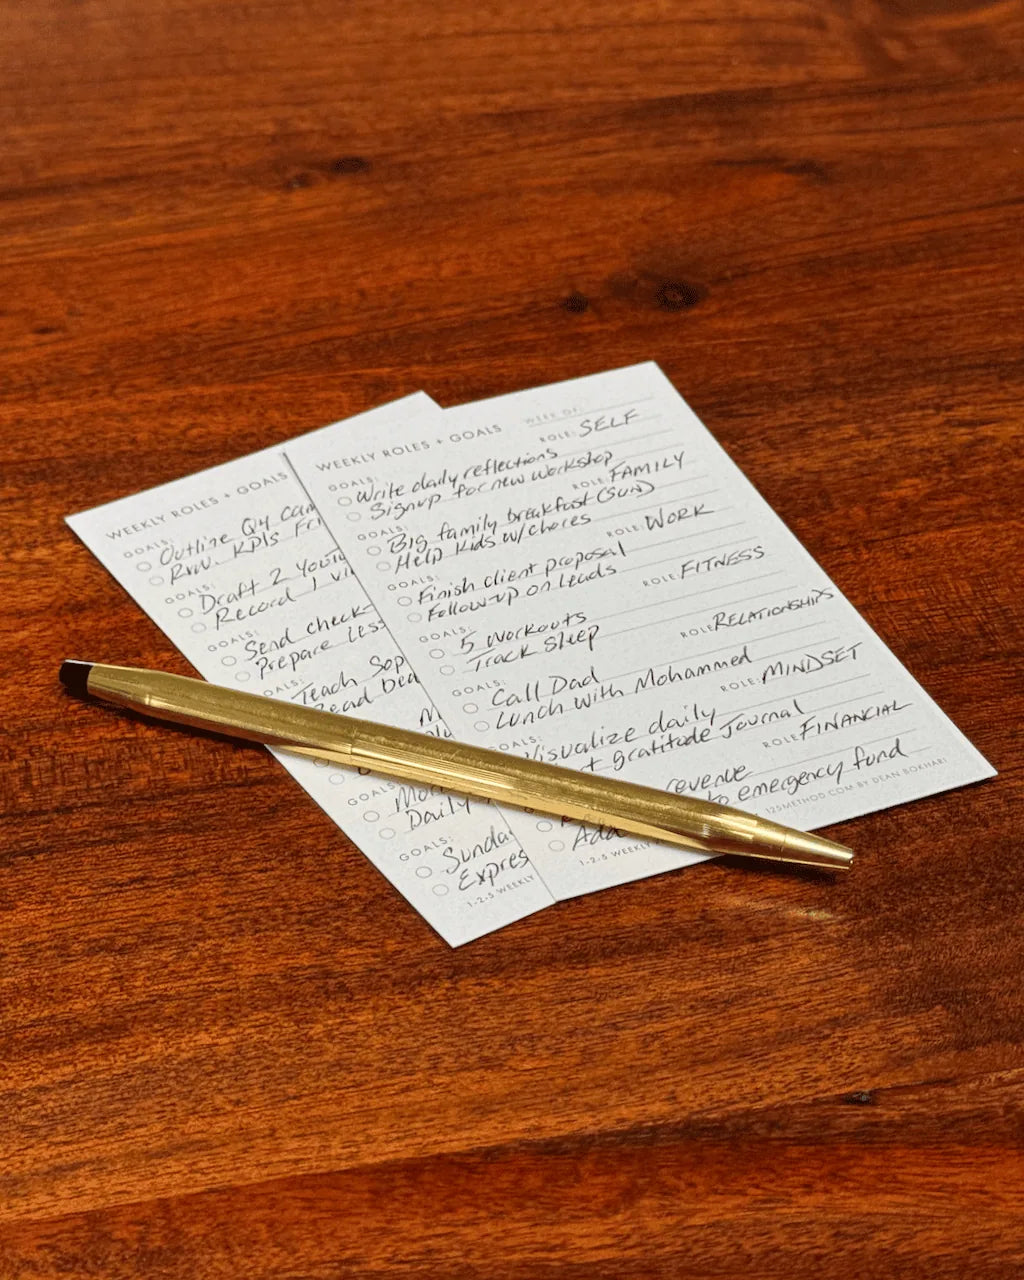 WEEKLY ROLES + GOALS
GOALS:
Outline Q4
Rvw. KPIs
GOALS:
Draft 2
Record 1
GOALS:
Send check-
Prepare
GOALS:
Teach
Read
GOALS:
Daily
GOALS:
Expres
1-2-5 WEEKLY
WEEKLY ROLES + GOALS WEEK OF:
GOALS: ROLE: SELF
Write daily reflections
Signup for new workshop
GOALS: ROLE: FAMILY
Big family breakfast (SUN)
Help kids w/chores
GOALS: ROLE: WORK
Finish client proposal
Follow-up on leads
GOALS: ROLE: FITNESS
5 workouts
Track Sleep
GOALS: ROLE: RELATIONSHIPS
Call Dad
Lunch with Mohammed
GOALS: ROLE: MINDSET
Visualize daily
gratitude journal
ROLE: FINANCIAL
revenue
Add to emergency fund
1-2-5 WEEKLY 125METHOD.COM BY DEAN BOKHARI